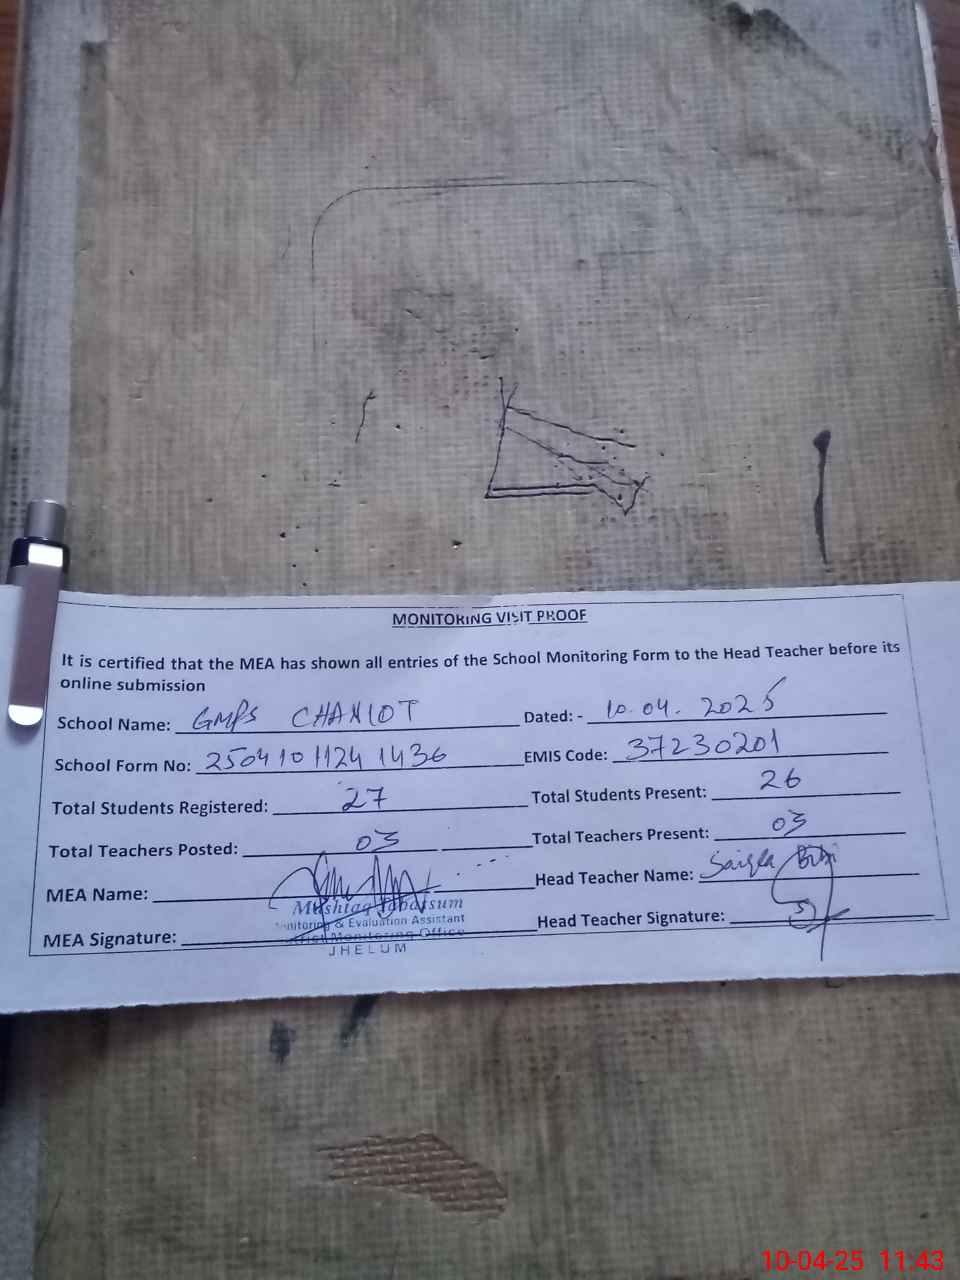 MONITORING VISIT PROOF
It is certified that the MEA has shown all entries of the School Monitoring Form to the Head Teacher before its
online submission
School Name: GMPS CHANIOT Dated: - 10.04.2025
School Form No: 25041011241436 EMIS Code: 37230201
Total Students Registered: 27 Total Students Present: 26
Total Teachers Posted: 03 Total Teachers Present: 03
MEA Name: Head Teacher Name: Saiqa Bibi
Mushtaq Tabassum
Monitoring & Evaluation Assistant
MEA Signature: Head Teacher Signature:
District Monitoring Office
JHELUM
10-04-25 11:43